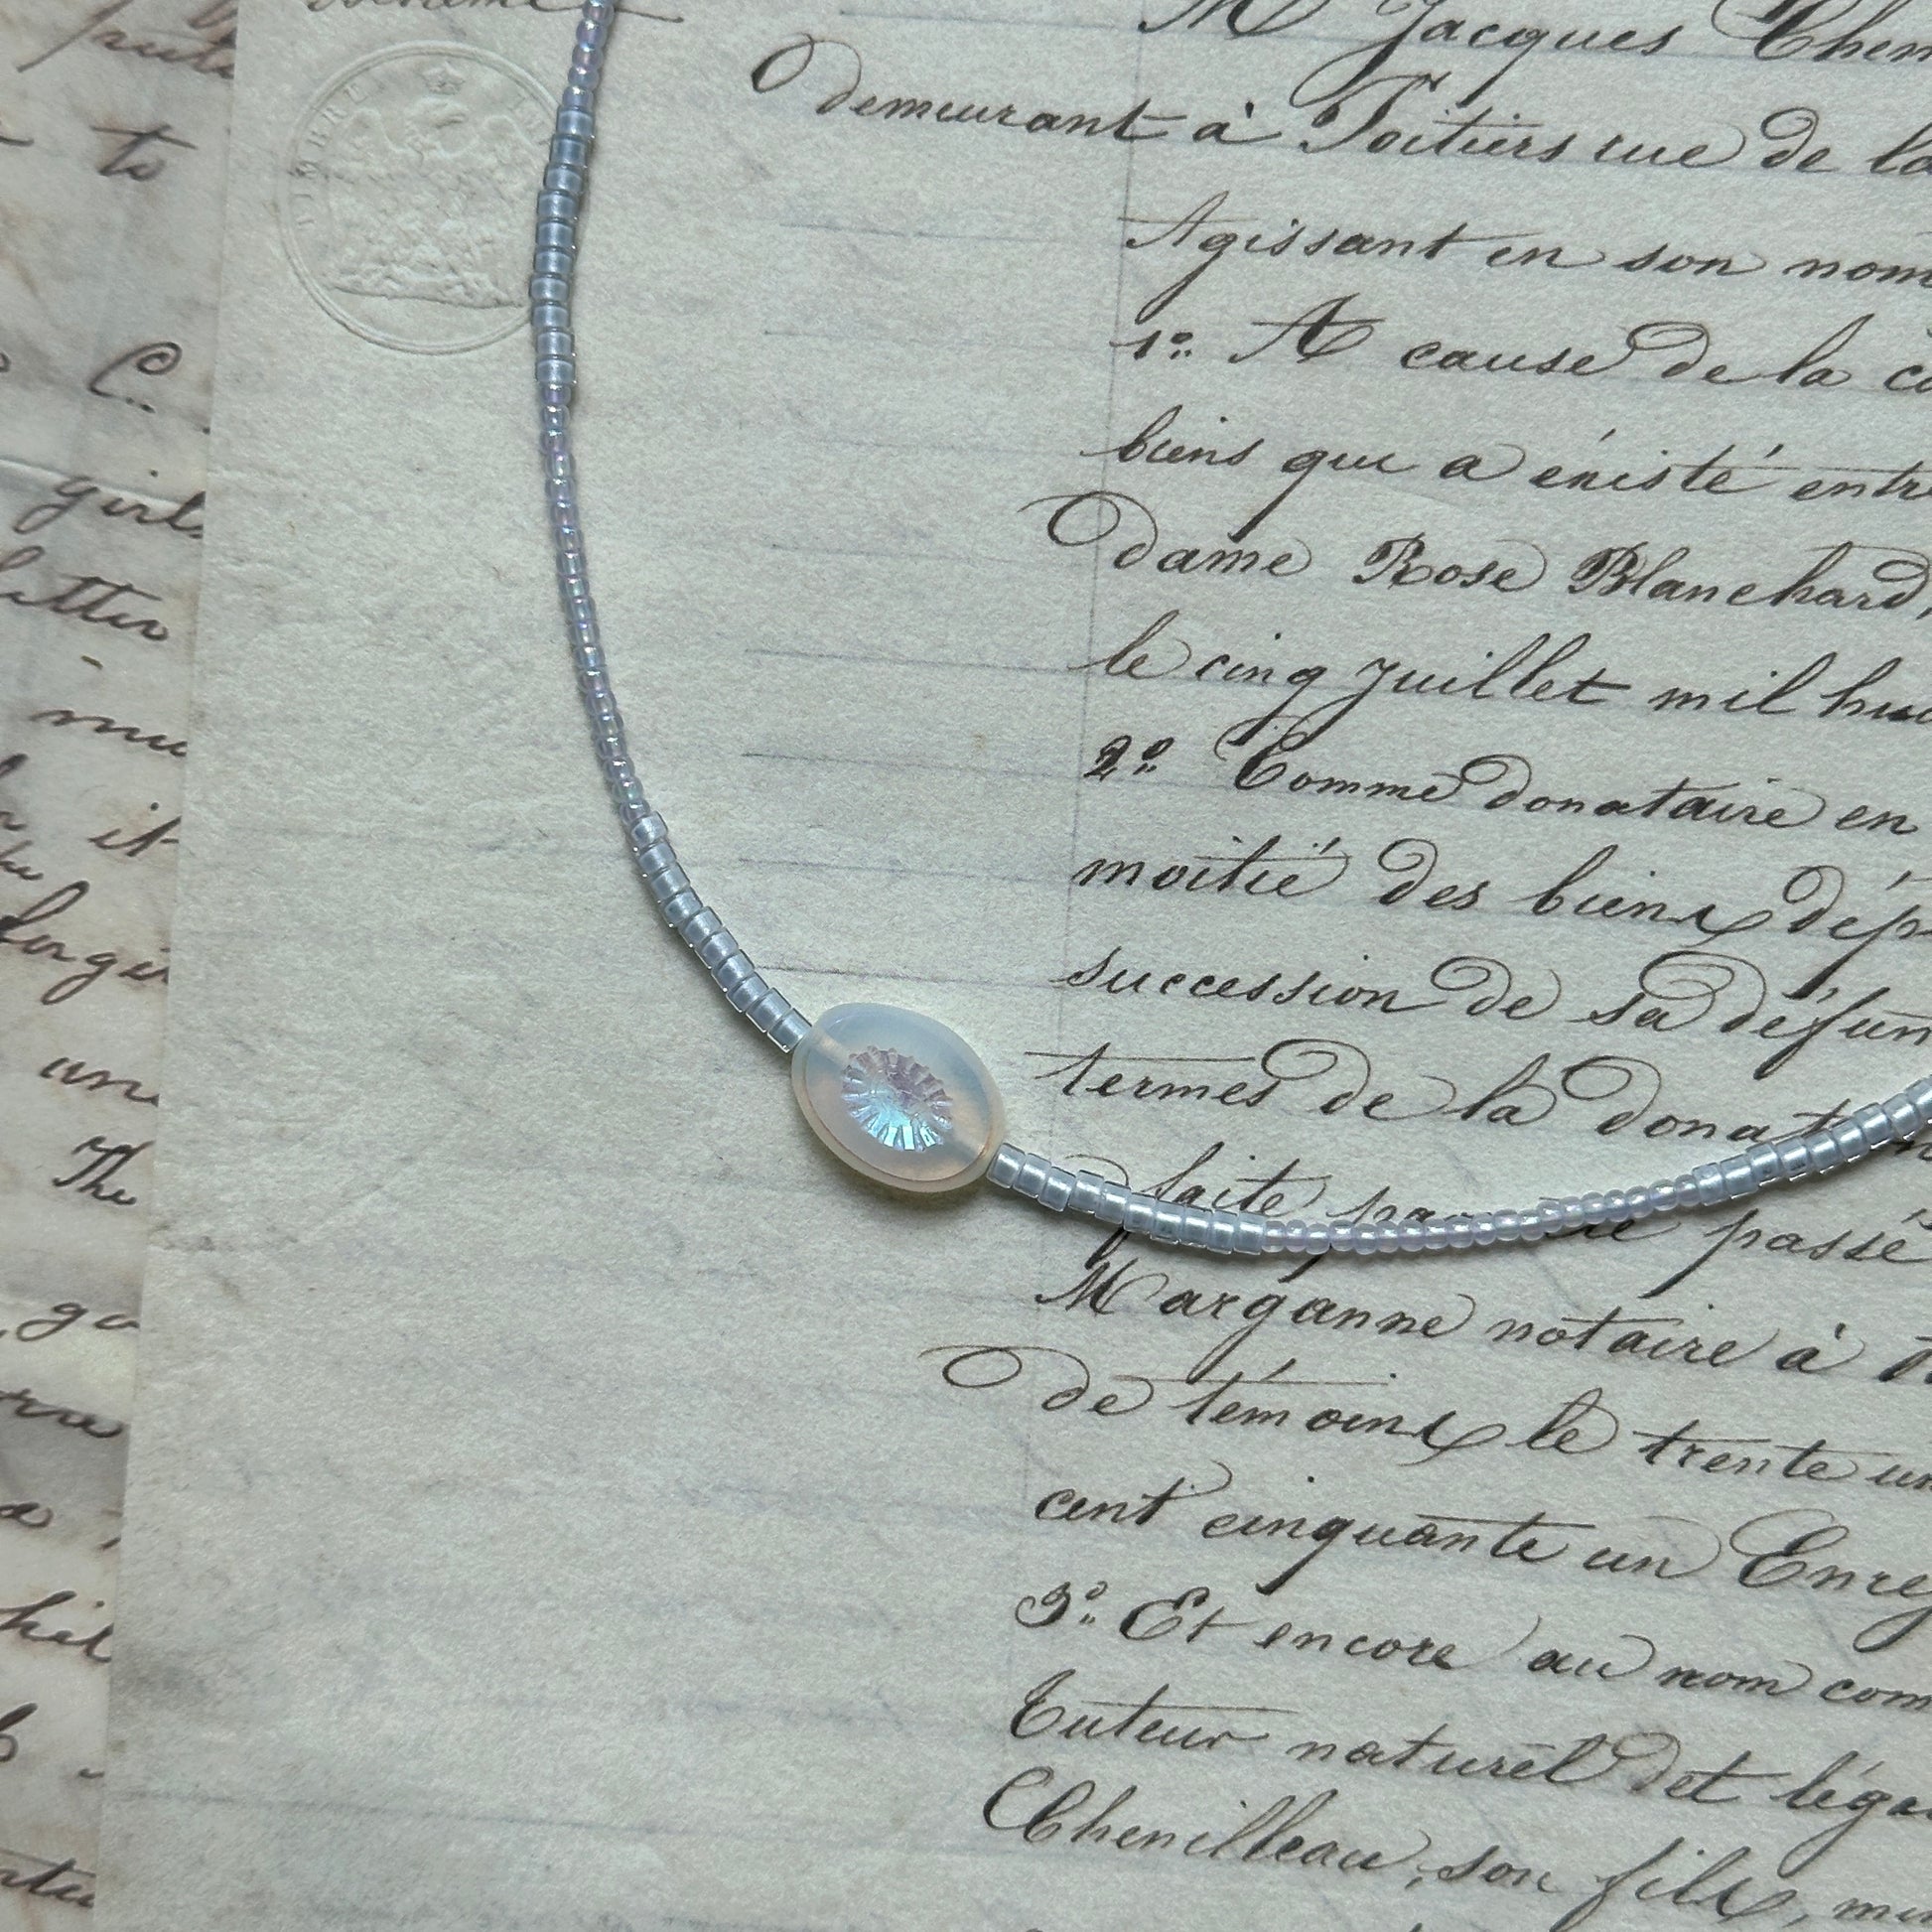 to
C.
girls
letter
it
The
TIMBRE
M Jacques Chen
demeurant à Poitiers rue de la
Agissant en son nom
1º A cause de la co
biens qui a éxisté entr
dame Rose Blanchard,
le cinq juillet mil hui
2º Comme donataire en
moitié des biens dép
succession de sa défun
termes de la donat
faite par passé
Marganne notaire à
de témoins le trente un
cent cinquante un Enreg
3º Et encore au nom com
Tuteur naturel det léga
Chenilleau, son fils, min